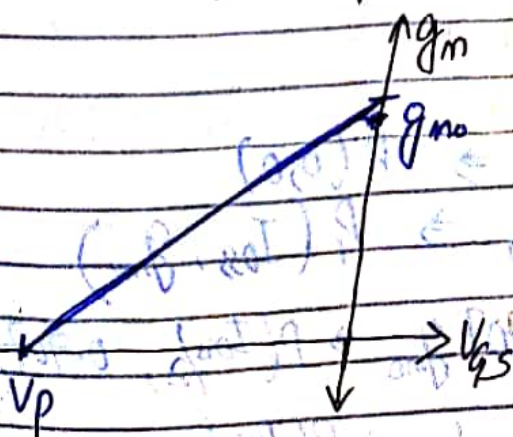 gm
gmo
VGS
Vp